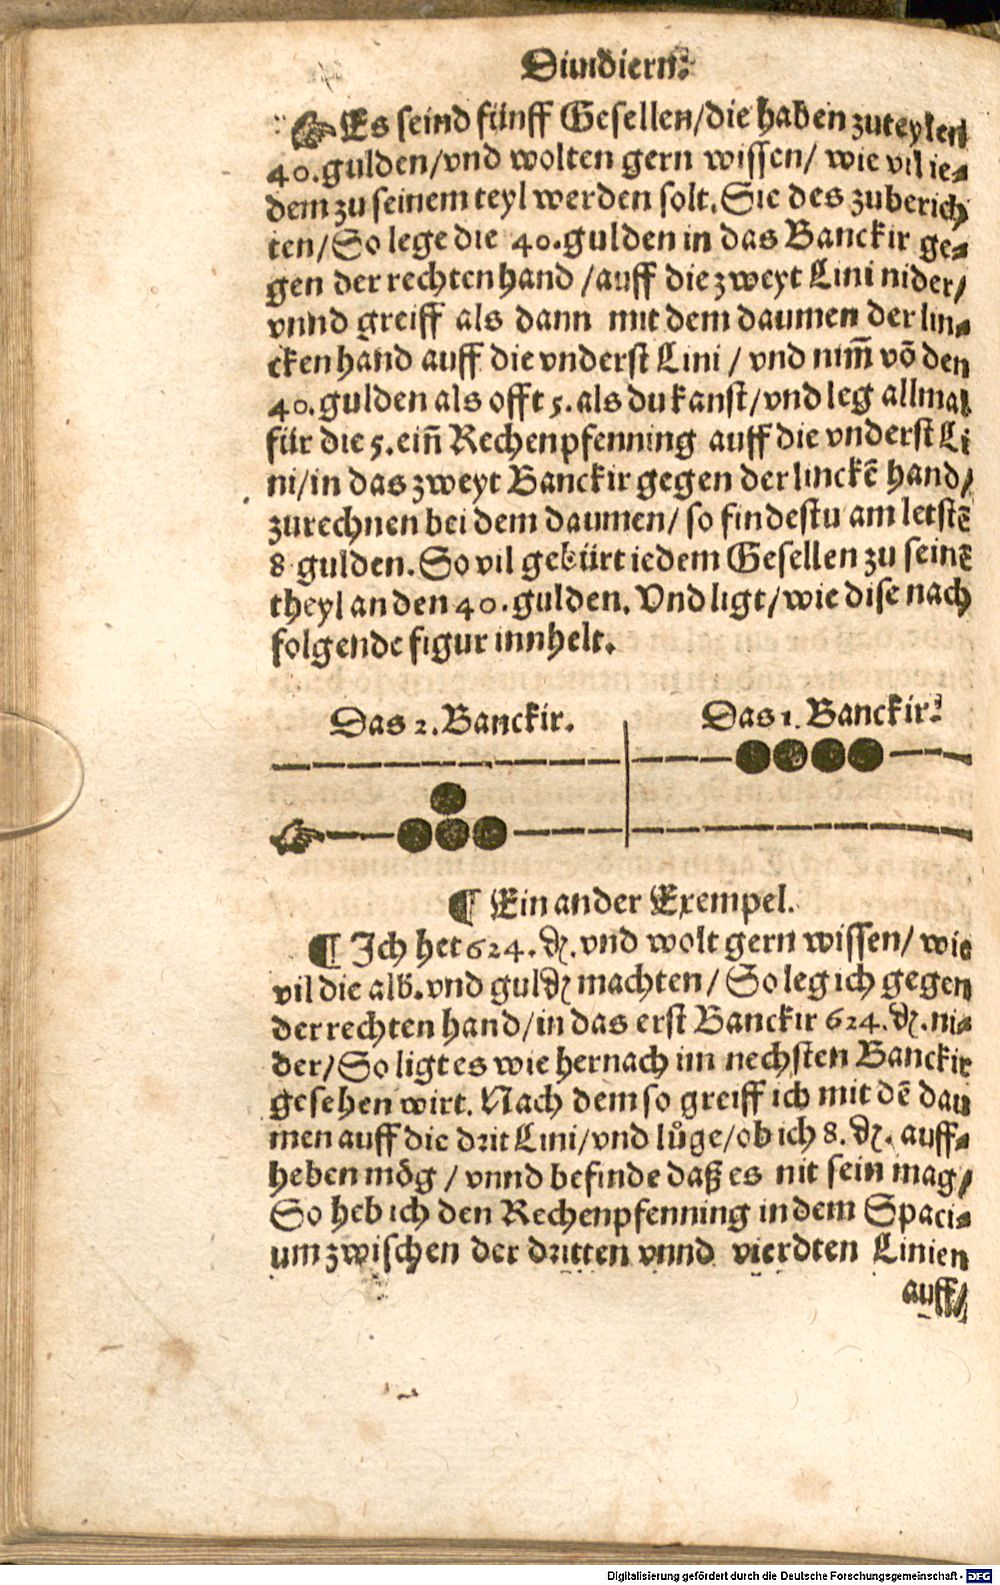 Diuidiern.
☞ Es seind fünff Gesellen/die haben zuteylen
40.gulden/vnd wolten gern wissen/ wie vil ie⸗
dem zu seinem teyl werden solt. Sie des zuberich
ten/So lege die 40.gulden in das Banckir ge⸗
gen der rechten hand /auff die zweyt Lini nider/
vnnd greiff als dann mit dem daumen der lin⸗
cken hand auff die vnderst Lini / vnd nim̄ vō den
40.gulden als offt 5.als du kanst/vnd leg allmal
für die 5.ein̄ Rechenpfenning auff die vnderst Li
ni/in das zweyt Banckir gegen der linckē hand/
zurechnen bei dem daumen/ so findestu am letstē
8 gulden. So vil gebürt iedem Gesellen zu seinē
theyl an den 40.gulden. Vnd ligt/wie dise nach
folgende figur innhelt.
Das 2.Banckir. Das 1.Banckir.
¶ Ein ander Exempel.
¶ Ich het 624.₰.vnd wolt gern wissen/ wie
vil die alb.vnd guld₰ machten/ So leg ich gegen
der rechten hand/in das erst Banckir 624.₰.ni⸗
der/ So ligt es wie hernach im nechsten Banckir
gesehen wirt. Nach dem so greiff ich mit dē dau
men auff die drit Lini/vnd lůge/ob ich 8.₰. auff⸗
heben mög / vnnd befinde daß es nit sein mag/
So heb ich den Rechenpfenning in dem Spaci⸗
um zwischen der dritten vnnd vierdten Linien
auff/
Digitalisierung gefördert durch die Deutsche Forschungsgemeinschaft - DFG